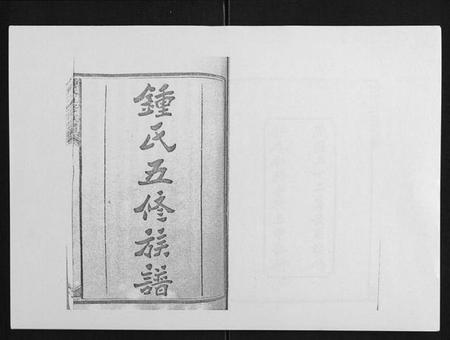 鍾氏五修族譜